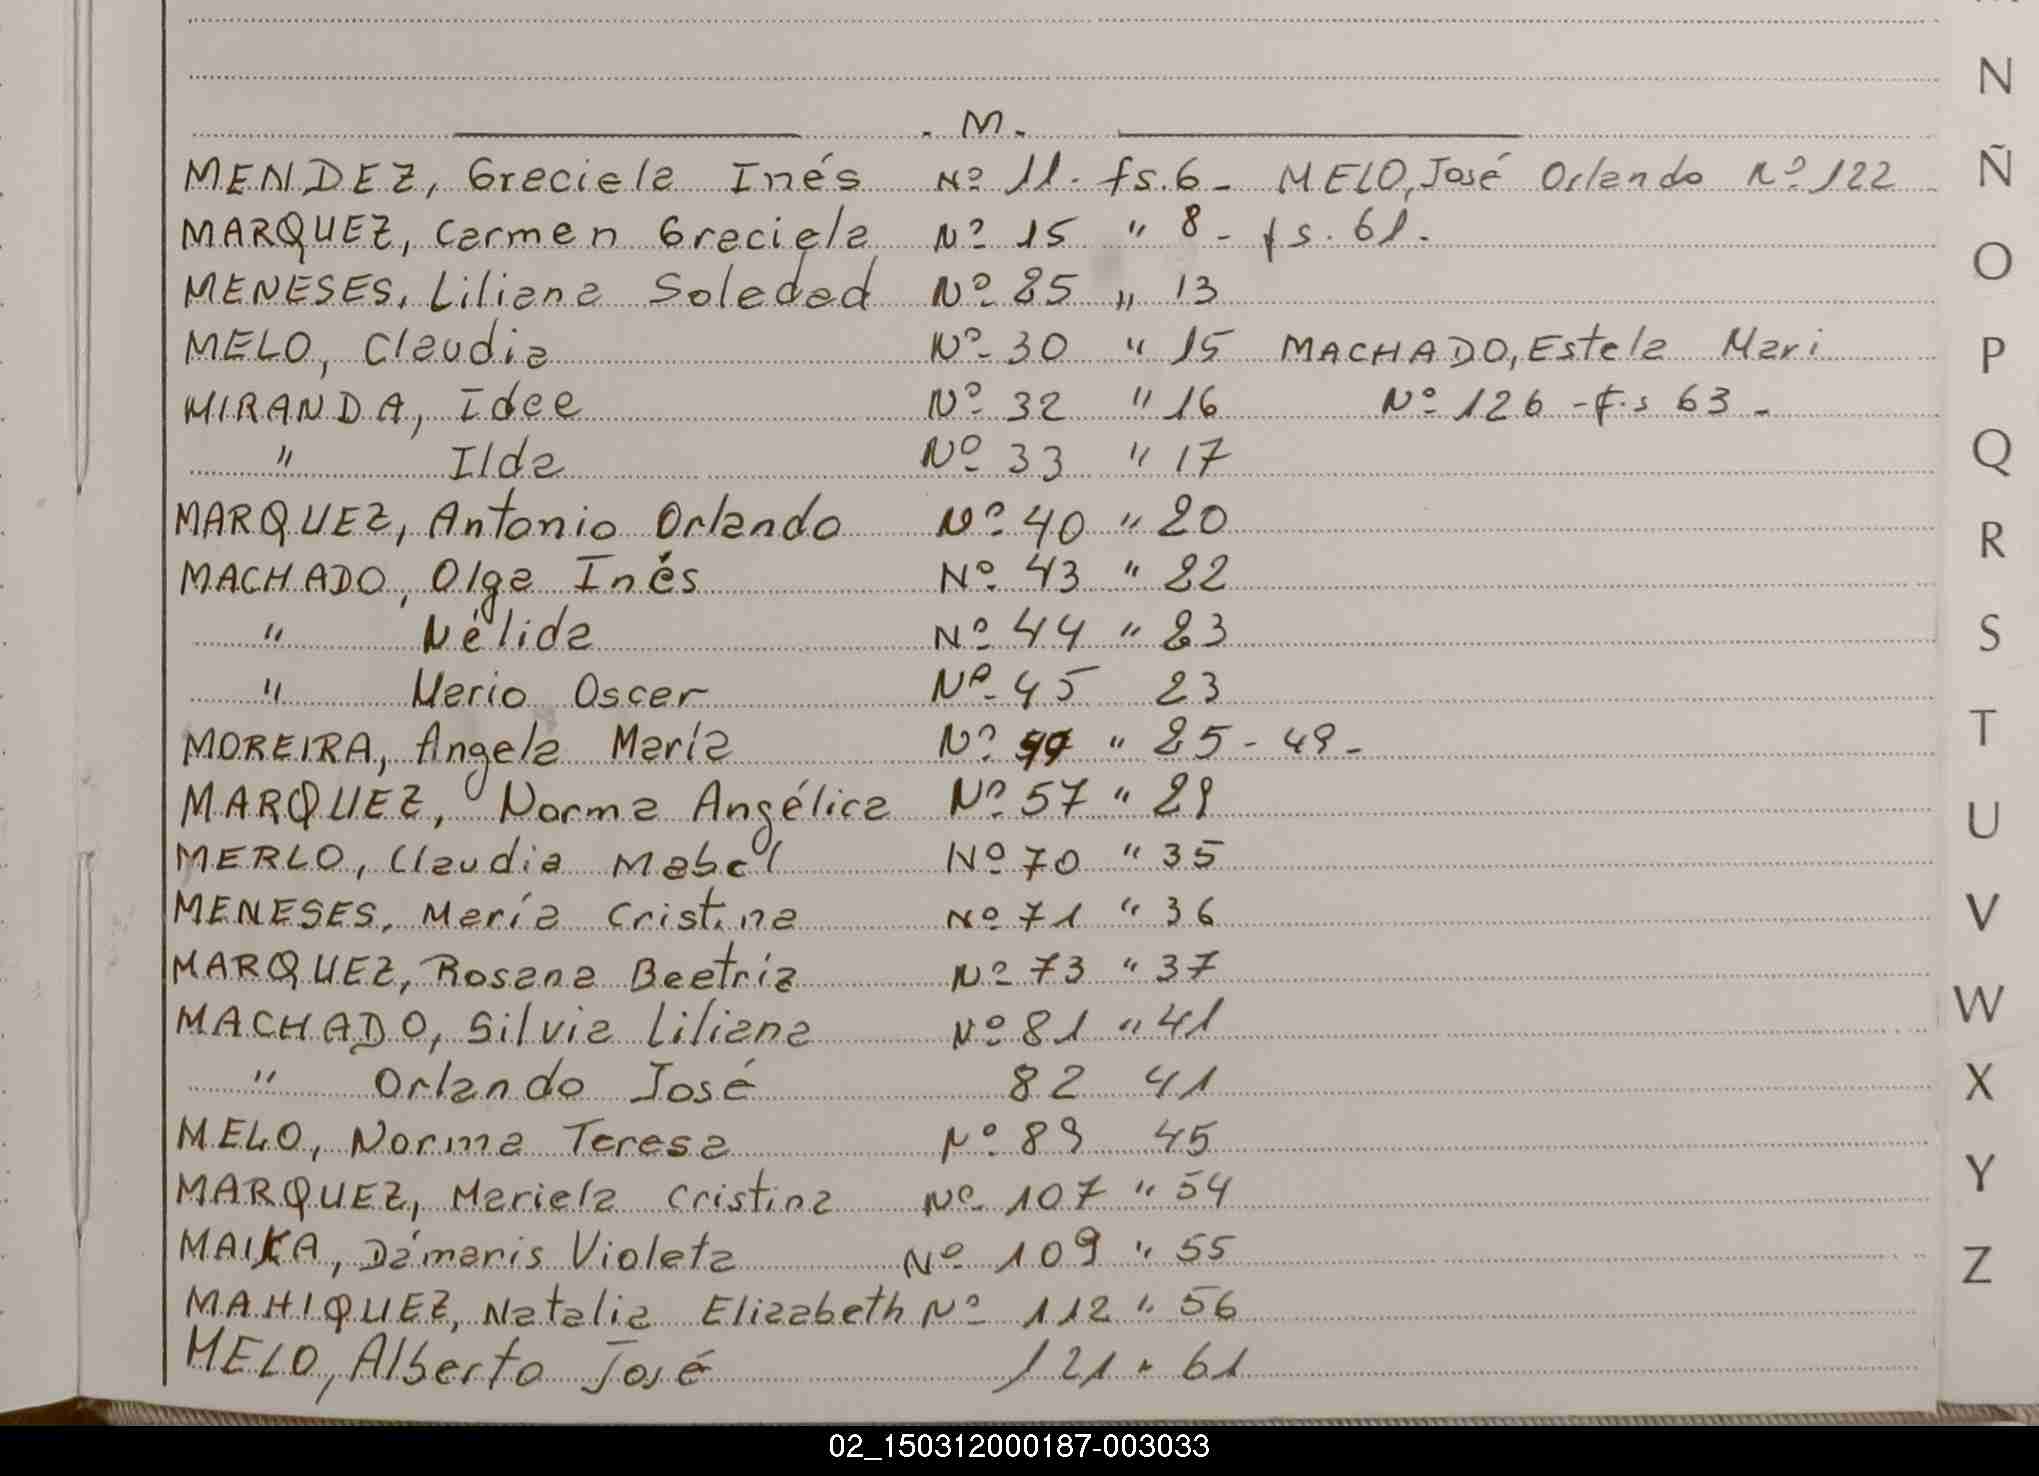 . M .
MENDEZ, Graciela Inés Nº 11. fs. 6 - MELO, José Orlando Nº 122
MARQUEZ, Carmen Graciela Nº 15 " 8 - fs. 61.
MENESES, Liliana Soledad Nº 25 " 13
MELO, Claudia Nº 30 " 15 MACHADO, Estela Mari
MIRANDA, Idee Nº 32 " 16 Nº 126 - f.s 63 -
" Ilda Nº 33 " 17
MARQUEZ, Antonio Orlando Nº 40 " 20
MACHADO, Olga Inés Nº 43 " 22
" Nélida Nº 44 " 23
" Mario Oscar Nº 45 23
MOREIRA, Angela María Nº " 25 - 49 -
MARQUEZ, Norma Angélica Nº 57 " 29
MERLO, Claudia Mabel Nº 70 " 35
MENESES, María Cristina Nº 71 " 36
MARQUEZ, Rosana Beatriz Nº 73 " 37
MACHADO, Silvia Liliana Nº 81 " 41
" Orlando José 82 41
MELO, Norma Teresa Nº 89 45
MARQUEZ, Mariela Cristina Nº 107 " 54
MAIKA, Dámaris Violeta Nº 109 " 55
MAHIQUEZ, Natalia Elizabeth Nº 112 " 56
MELO, Alberto José 121 " 61
N
Ñ
O
P
Q
R
S
T
U
V
W
X
Y
Z
02_150312000187-003033